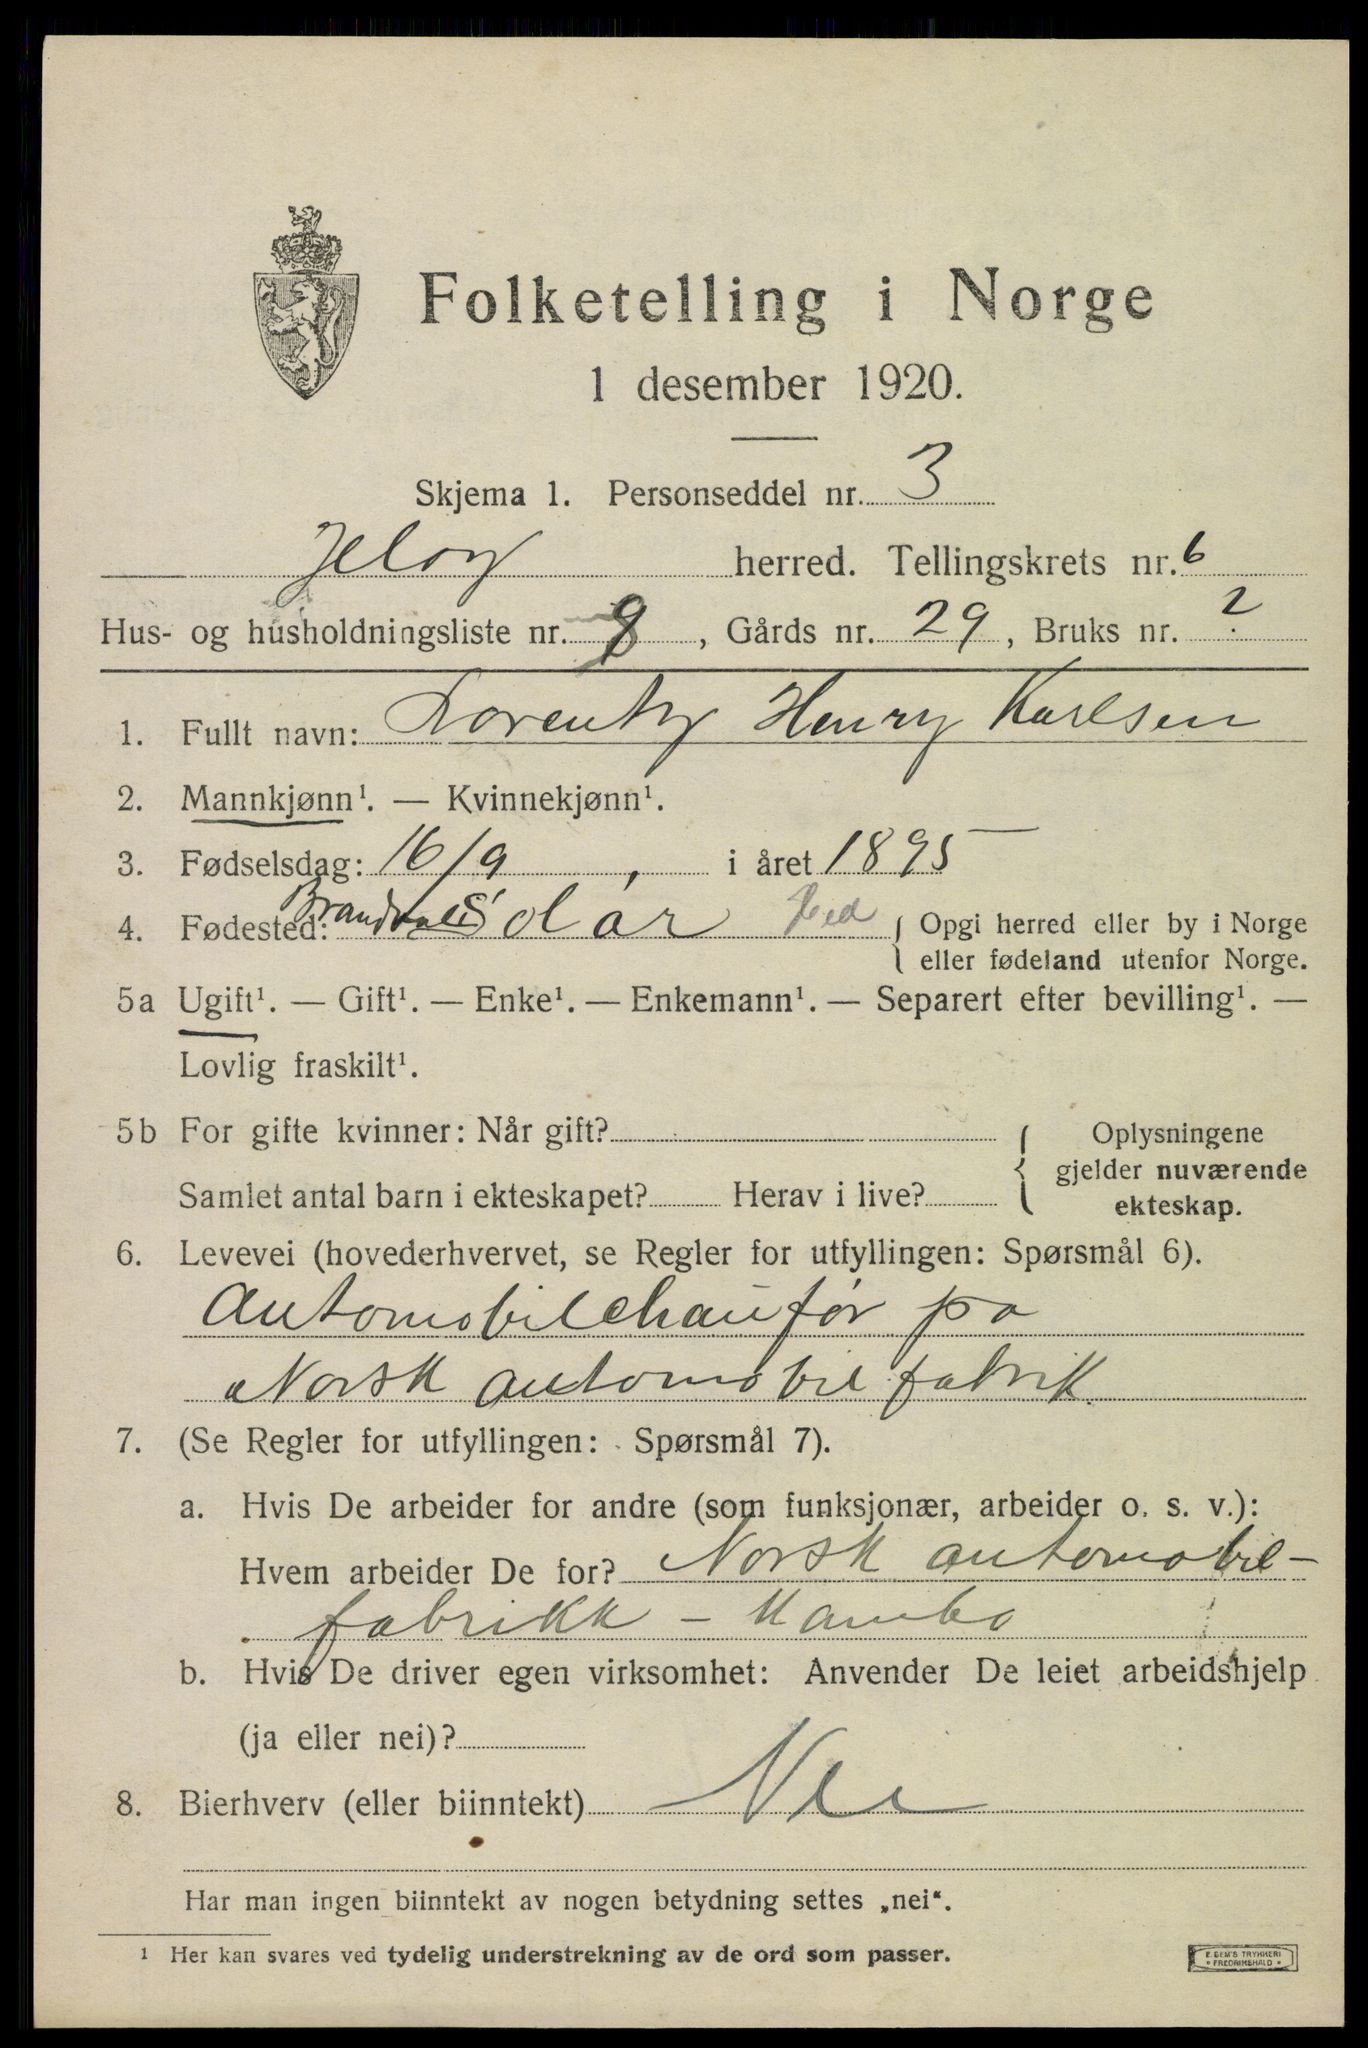 Folketelling i Norge
1 desember 1920.
Skjema 1. Personseddel nr. 3
Jeløy herred. Tellingskrets nr. 6
Hus- og husholdningsliste nr. 8, Gårds nr. 29, Bruks nr. ?
1. Fullt navn: Lorentz Henry Karlsen
2. Mannkjønn¹. — Kvinnekjønn¹.
3. Fødselsdag: 16/9, i året 1895
4. Fødested: Brandval Solør Hed { Opgi herred eller by i Norge
eller fødeland utenfor Norge.
5a Ugift¹. — Gift¹. — Enke¹. — Enkemann¹. — Separert efter bevilling¹. —
Lovlig fraskilt¹.
5b For gifte kvinner: Når gift? { Oplysningene
gjelder nuværende
Samlet antal barn i ekteskapet? Herav i live? ekteskap.
6. Levevei (hovederhvervet, se Regler for utfyllingen: Spørsmål 6).
Automobilchaufør po
Norsk automobilfabrik.
7. (Se Regler for utfyllingen: Spørsmål 7).
a. Hvis De arbeider for andre (som funksjonær, arbeider o. s. v.):
Hvem arbeider De for? Norsk automobil-
fabrikk - Kambo
b. Hvis De driver egen virksomhet: Anvender De leiet arbeidshjelp
(ja eller nei)?
8. Bierhverv (eller biinntekt) Nei
Har man ingen biinntekt av nogen betydning settes „nei“.
¹ Her kan svares ved tydelig understrekning av de ord som passer.
E. SEM'S TRYKKERI
• FREDRIKSHALD •